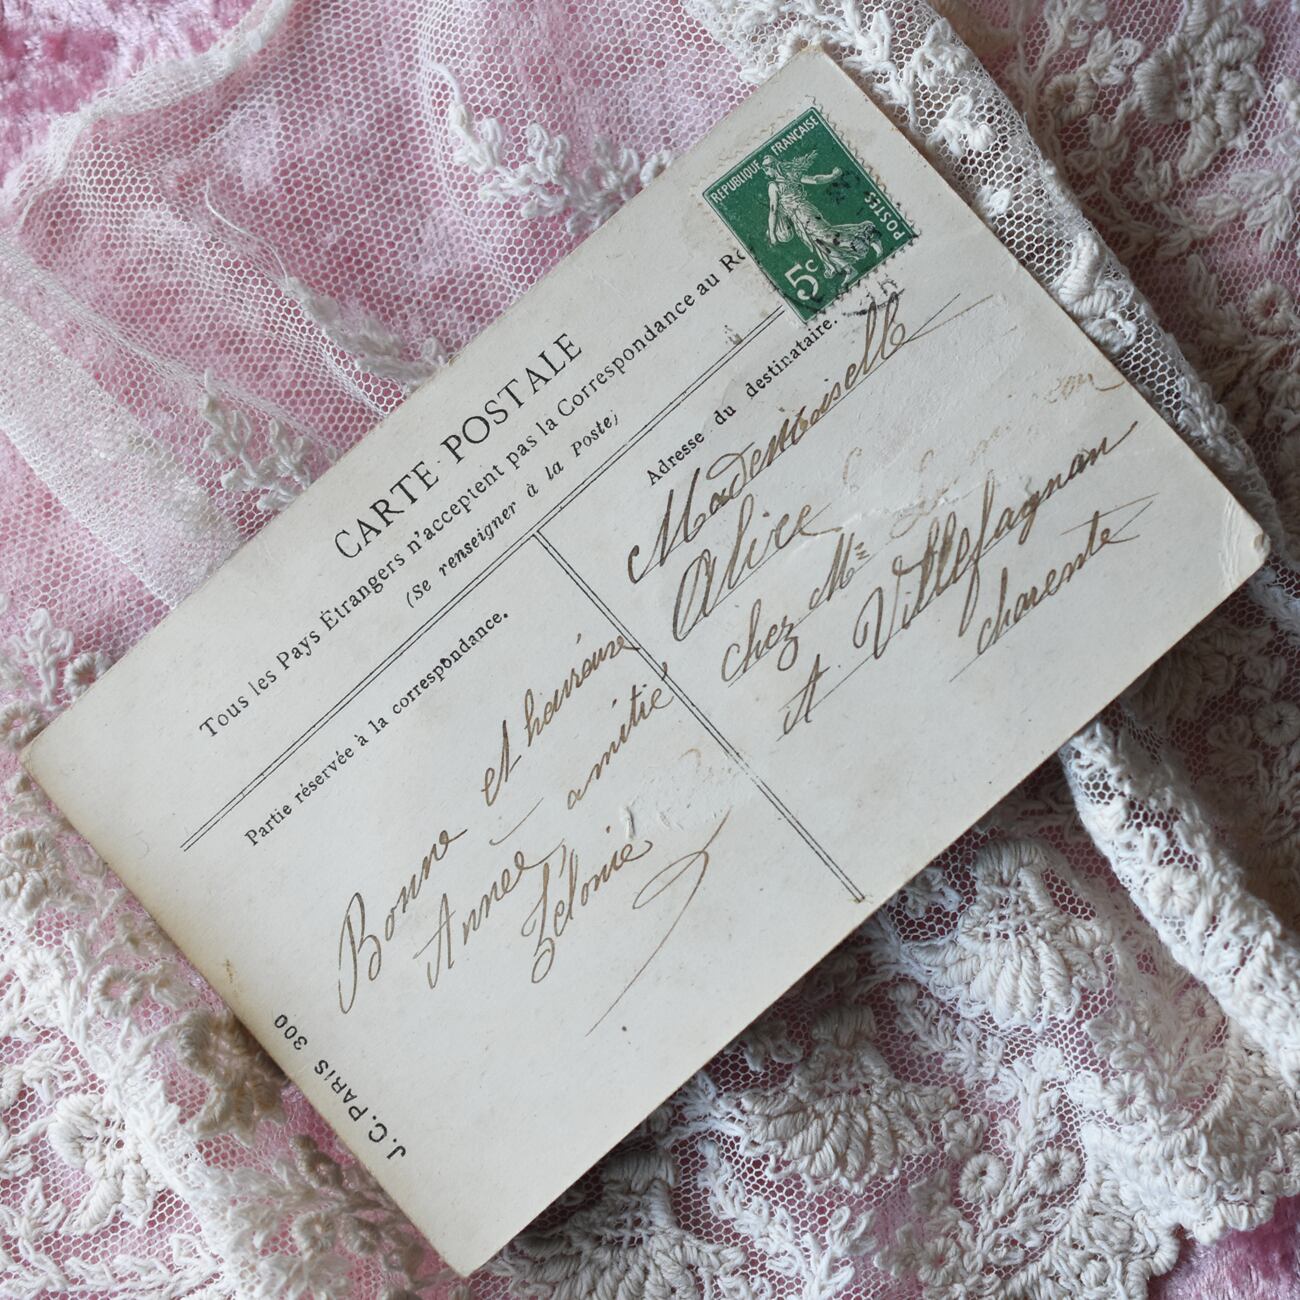 CARTE POSTALE
Tous les Pays Étrangers n'acceptent pas la Correspondance au
(Se renseigner à la Poste)
Partie réservée à la correspondance.
Adresse du destinataire.
RÉPUBLIQUE FRANÇAISE
POSTES
5c
Bonne et heureuse
Année amitié
Zélonie
Mademoiselle
Alice
chez Mr
A Villefagnan
charente
J.C. PARIS 300